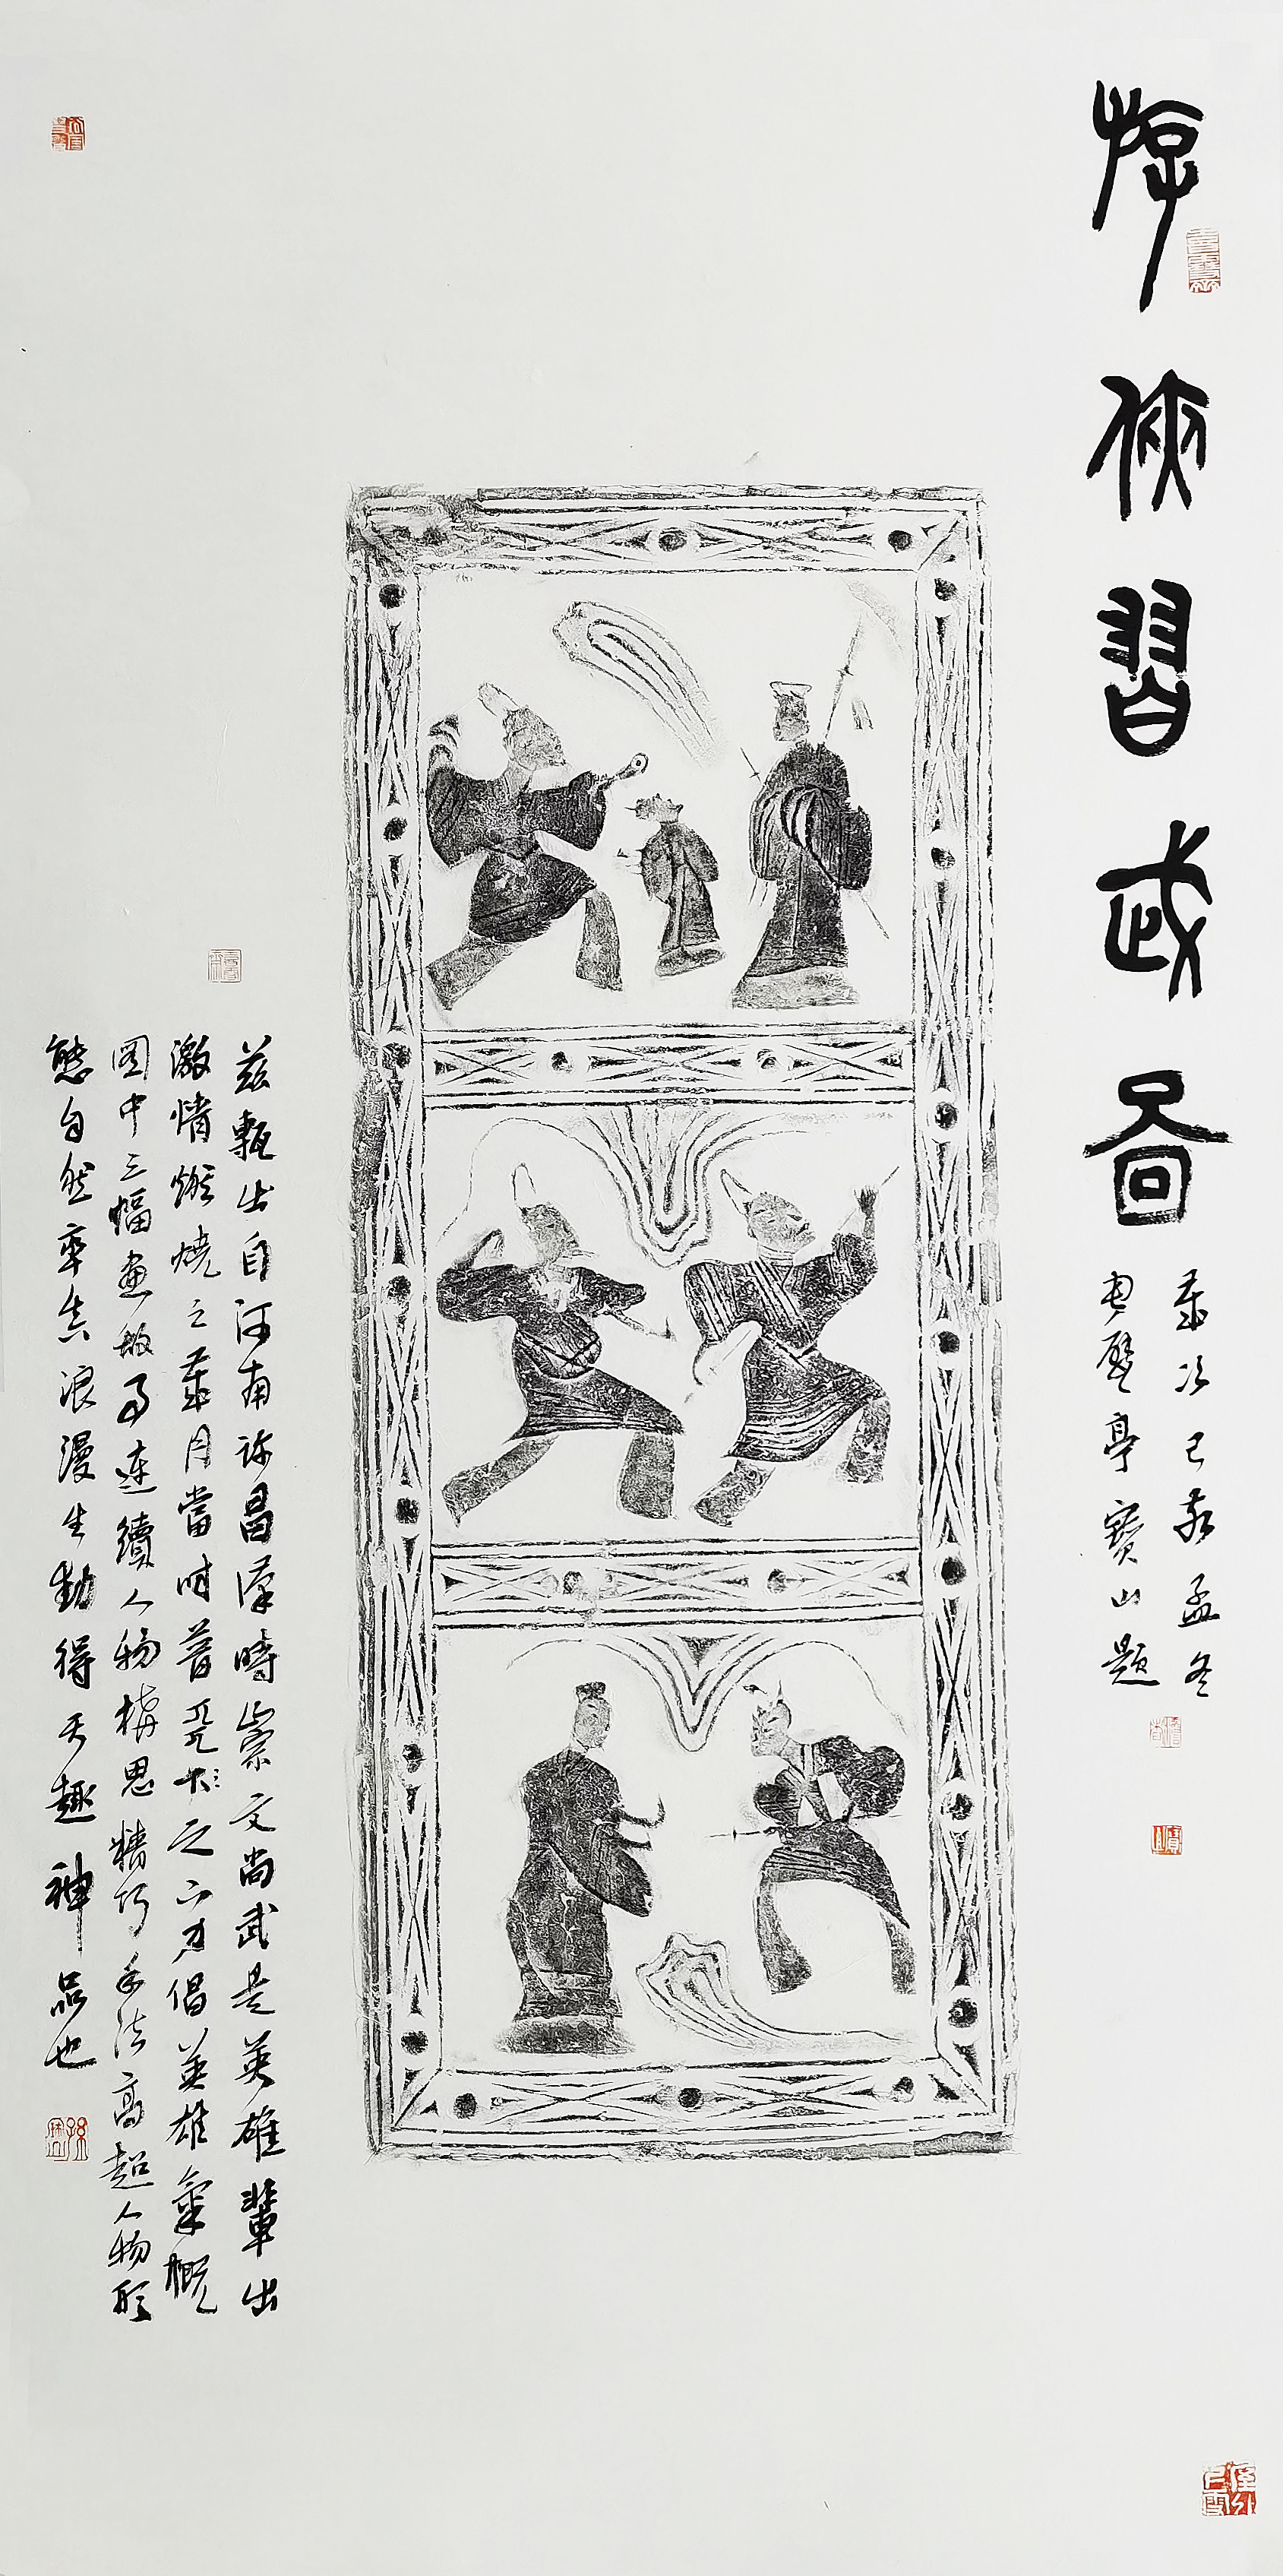 游俠習武圖
歲次己亥孟冬
寶山題
茲甎出自河南許昌漢時崇文尚武是英雄輩出
激情燃燒之歲月當時普及之倡英雄氣概
圖中三幅畫敘事連續人物構思精巧手法高超人物形
態自然率真浪漫生動得天趣神品也